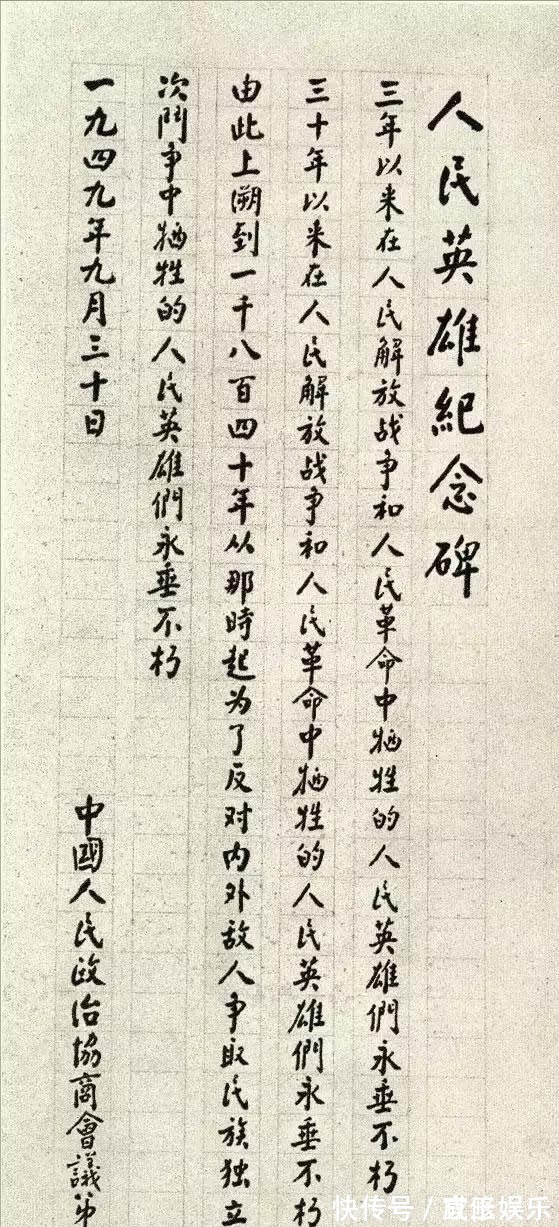 人民英雄紀念碑
三年以来在人民解放战争和人民革命中牺牲的人民英雄們永垂不朽
三十年以来在人民解放战争和人民革命中牺牲的人民英雄們永垂不朽
由此上溯到一千八百四十年从那時起为了反对内外敌人争取民族独立
次鬥争中牺牲的人民英雄們永垂不朽
一九四九年九月三十日
中國人民政治協商會議第
快传号/蒑慇娱乐